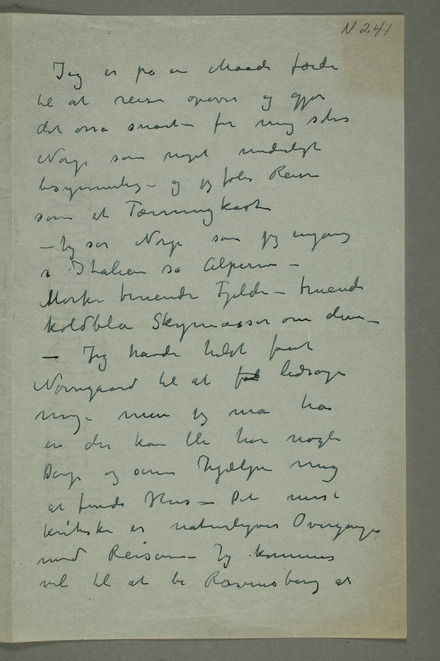 N 241
Jeg er på en Maade færdi
til at reise opover og gjør
det ossa snart – for mig står
Norge som noget underligt
besynnerlig – og jeg føler Reisen
som et Tærningkast
– Jeg ser Norge som jeg engang
i Italien så Alperne –
Mørke truende Fjelde – truende
koldblå Skymasser om dem –
– Jeg havde helst faat
Nørregaard til at ledsage
mig men jeg må ha
en der kan bli her nogle
Dage og hjælpe mig
at finde Hus – Det mest
kritiske er naturligvis Overgangen
med Reisen – Jeg kommer
vel til at be Ravensberg at